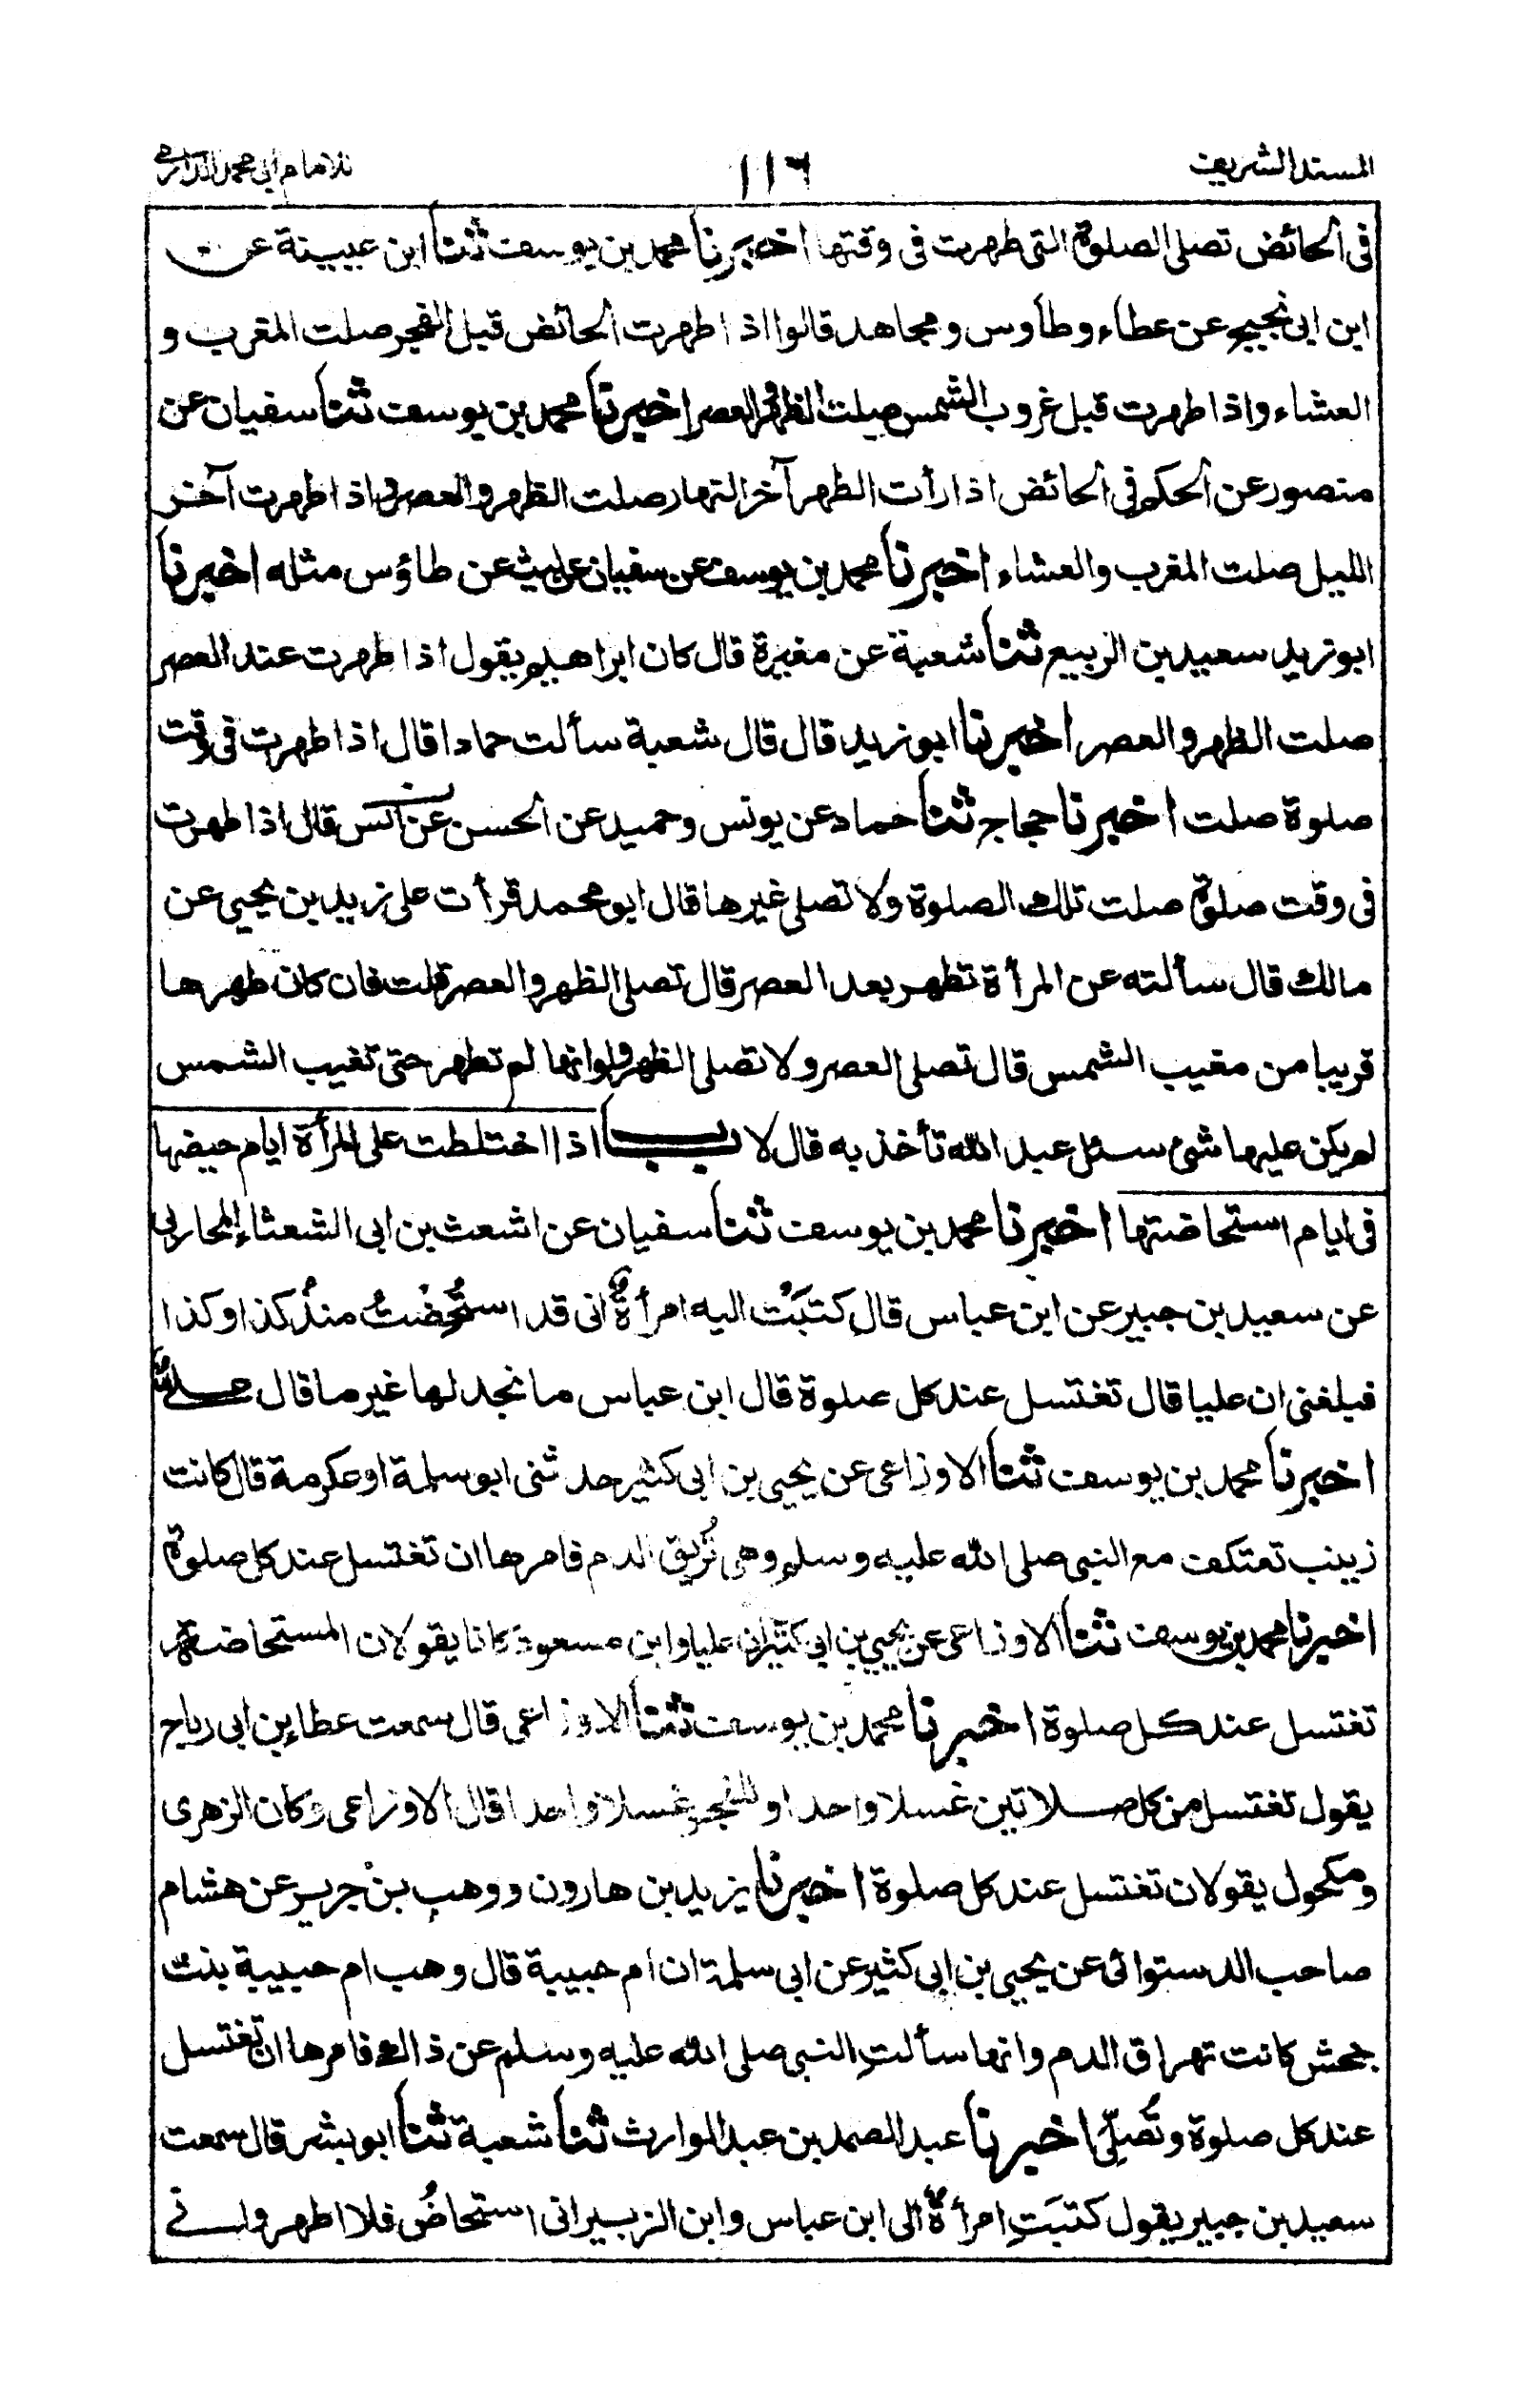 المسند الشريف ١١٦ للامام ابي محمد الدارمي
في الحائض تصلي الصلوة التي طهرت في وقتها اخبرنا محمد بن يوسف ثنا ابن عيينة عن
ابن ابي نجيح عن عطاء وطاوس ومجاهد قالوا اذا طهرت الحائض قبل الفجر صلت المغرب و
العشاء واذا طهرت قبل غروب الشمس صلت الظهر والعصر اخبرنا محمد بن يوسف ثنا سفيان عن
منصور عن الحكم في الحائض اذا رأت الطهر آخر النهار صلت الظهر والعصر واذا طهرت آخر
الليل صلت المغرب والعشاء اخبرنا محمد بن يوسف عن سفيان عن ليث عن طاؤس مثله اخبرنا
ابو زيد سعيد بن الربيع ثنا شعبة عن مغيرة قال كان ابراهيم يقول اذا طهرت عند العصر
صلت الظهر والعصر اخبرنا ابو زيد قال قال شعبة سألت حمادا قال اذا طهرت في وقت
صلوة صلت اخبرنا حجاج ثنا حماد عن يونس وحميد عن الحسن عن انس قال اذا طهرت
في وقت صلوة صلت تلك الصلوة ولا تصلي غيرها قال ابو محمد قرأت على زيد بن يحيى عن
مالك قال سألته عن المرأة تطهر بعد العصر قال تصلي الظهر والعصر قلت فان كان طهرها
قريبا من مغيب الشمس قال تصلي العصر ولا تصلي الظهر ولو انها لم تطهر حتى تغيب الشمس
لم يكن عليها شئ سئل عبد الله تأخذ به قال لا باب اذا اختلطت على المرأة ايام حيضها
في ايام استحاضتها اخبرنا محمد بن يوسف ثنا سفيان عن اشعث بن ابي الشعثاء المحاربي
عن سعيد بن جبير عن ابن عباس قال كتبَتْ اليه امرأةٌ اني قد استُحِضْتُ منذُ كذا وكذا
فبلغني ان عليا قال تغتسل عند كل صلوة قال ابن عباس ما نجد لها غير ما قال علي
اخبرنا محمد بن يوسف ثنا الاوزاعي عن يحيى بن ابي كثير حدثني ابو سلمة او عكرمة قال كانت
زينب تعتكف مع النبي صلى الله عليه وسلم وهي تُريق الدم فامرها ان تغتسل عند كل صلوة
اخبرنا محمد بن يوسف ثنا الاوزاعي عن يحيى بن ابي كثير ان عليا وابن مسعود كانا يقولان المستحاضة
تغتسل عند كل صلوة اخبرنا محمد بن يوسف ثنا الاوزاعي قال سمعت عطاء بن ابي رباح
يقول تغتسل من كل صلاتين غسلا واحدا وللفجر غسلا واحدا قال الاوزاعي وكان الزهري
ومكحول يقولان تغتسل عند كل صلوة اخبرنا يزيد بن هارون ووهب بن جرير عن هشام
صاحب الدستوائي عن يحيى بن ابي كثير عن ابي سلمة ان ام حبيبة قال وهب ام حبيبة بنت
جحش كانت تهراق الدم وانها سألتِ النبي صلى الله عليه وسلم عن ذالك فامرها ان تغتسل
عند كل صلوة وتُصَلِّي اخبرنا عبد الصمد بن عبد الوارث ثنا شعبة ثنا ابو بشر قال سمعت
سعيد بن جبير يقول كتبَتِ امرأةٌ الى ابن عباس وابن الزبير اني استحاضُ فلا اطهر واني